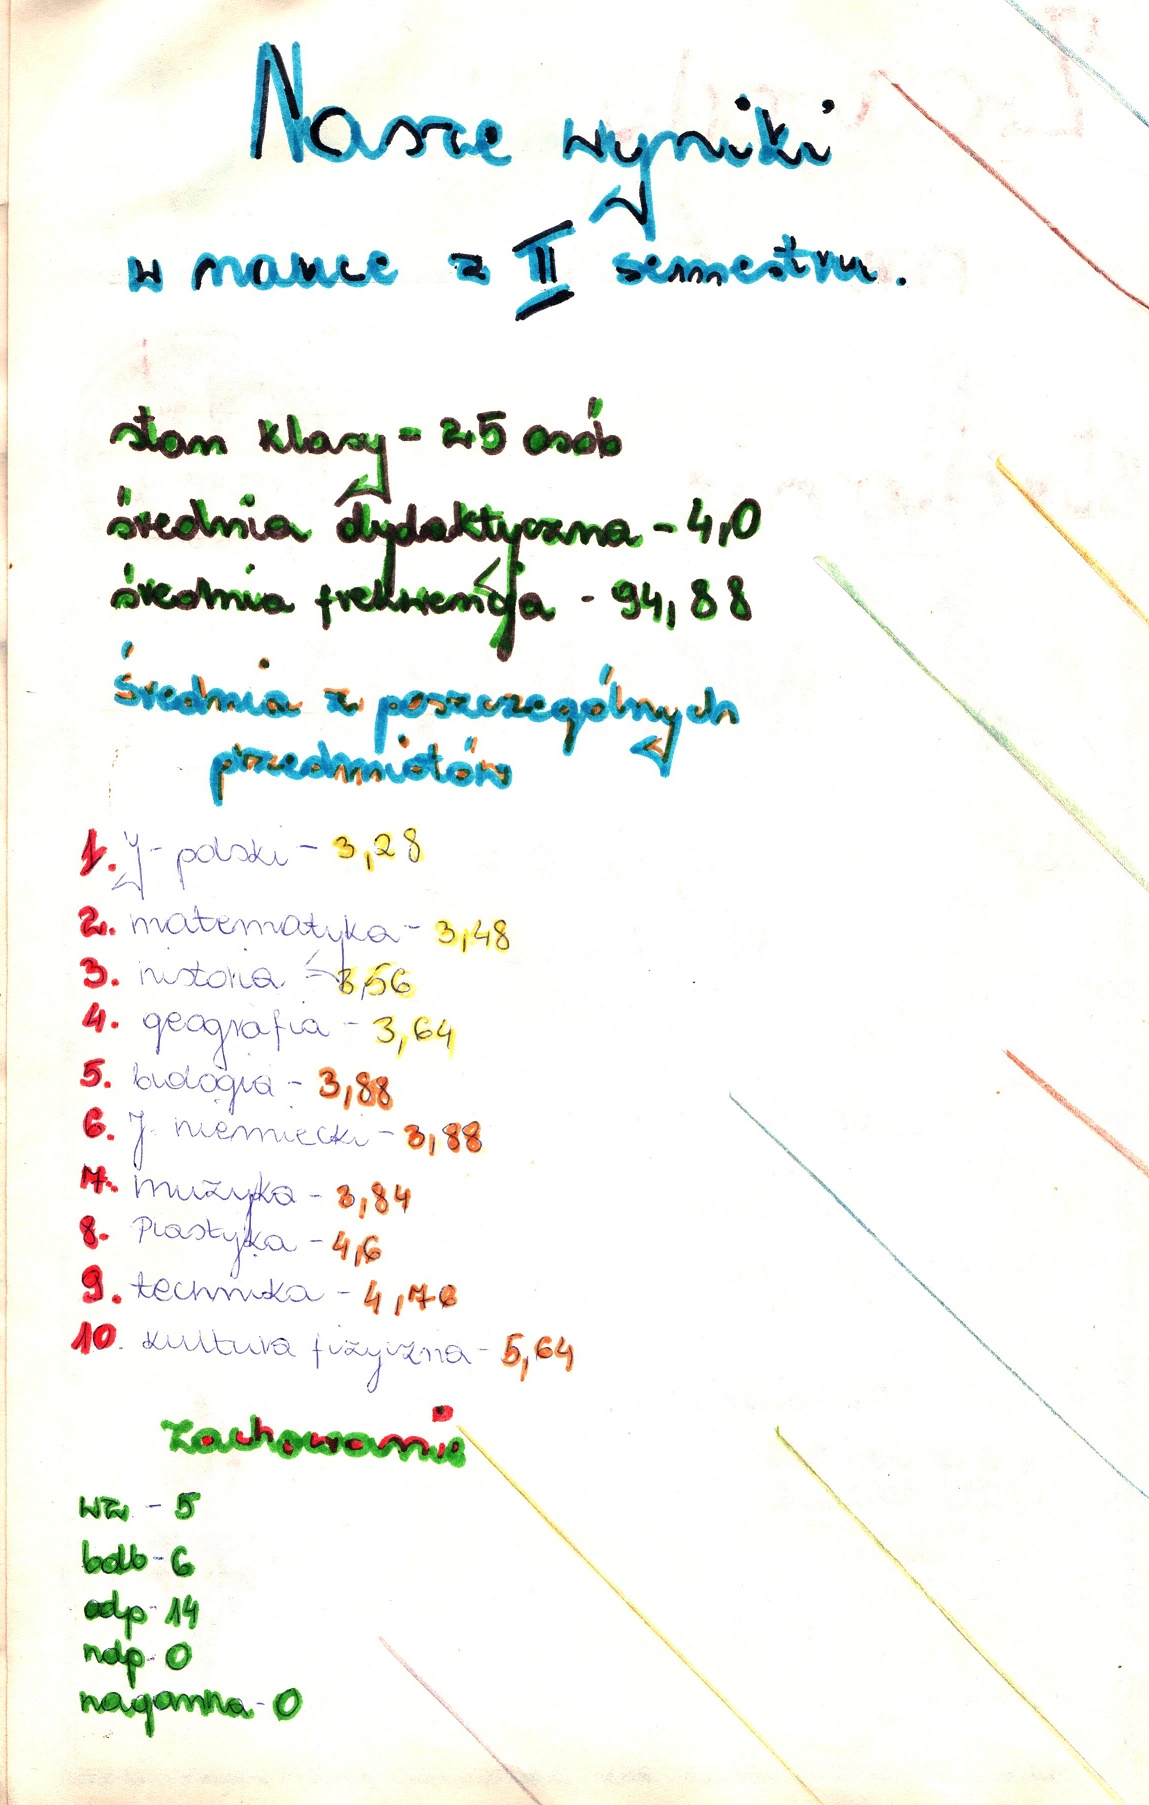 Nasze wyniki
w nauce z II semestru.
stan klasy - 25 osób
średnia dydaktyczna - 4,0
średnia frekwencja - 94,88
Średnia z poszczególnych
przedmiotów
1. J. polski - 3,28
2. matematyka - 3,48
3. historia - 3,56
4. geografia - 3,64
5. biologia - 3,88
6. J. niemiecki - 3,88
7. muzyka - 3,84
8. Plastyka - 4,6
9. technika - 4,76
10. kultura fizyczna - 5,64
Zachowanie
wz. - 5
bdb - 6
odp - 14
ndp - 0
naganna - 0